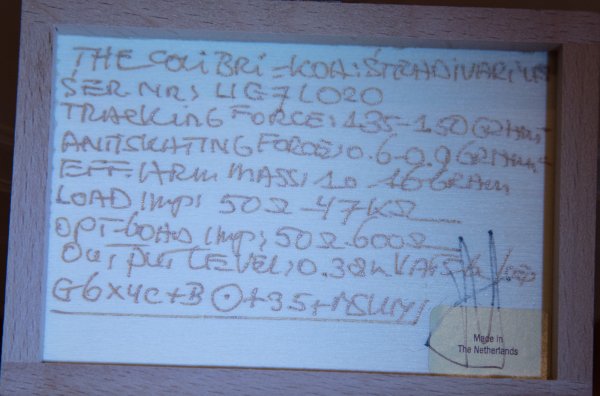 THE COLIBRI-KOA: STRADIVARIUS
SER NR: LIG7L020
TRACKING FORCE: 1.35-1.50 GRAMS
ANTISKATING FORCE: 0.6-0.9 GRAMS
EFF. ARM MASS: 10-16 GRAM
LOAD IMP: 50Ω-47KΩ
OPT-LOAD IMP: 50Ω-600Ω
OUTPUT LEVEL: 0.38m
G6X4C+B
Made in
The Netherlands